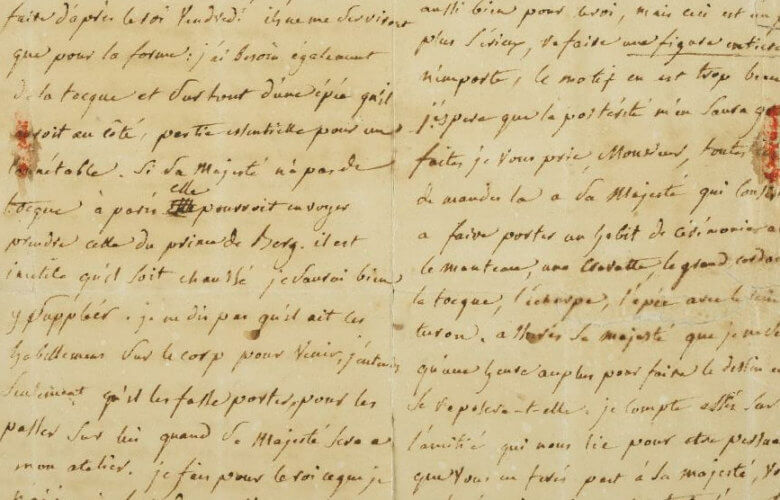 faite d'après le roi Vendredi ils ne me serviront
que pour la forme : j'ai besoin également
de la tocque et surtout d'une épée qu'il
auroit au côté, partie essentielle pour un
Connétable. Si Sa Majesté n'a pas de
tocque à paris elle pourroit envoyer
prendre celle du prince de Berg. il est
inutile qu'il soit chaussé je saurai bien
y suppléer. je ne dis pas qu'il ait ces
habillemens sur le corp pour venir, j'entens
seulement qu'il les fasse porter, pour les
passer sur lui quand Sa Majesté sera a
mon atelier. je fais pour le roi ce que je
aussi bien pour le roi, mais ceci est
plus sérieux, de faire une figure entière
n'importe, le motif en est trop beau
j'espere que la postérité m'en saura
faites je vous prie, Monsieur, toutes
demandes la a Sa Majesté qui
a faire porter un habit de cérémonie
le manteau, une Cravatte, le grand cordon
la tocque, l'écharpe, l'épée avec le cein
turon. assurés Sa majesté que je ne
qu'une heure au plus pour faire le dessin
se reposera-t-elle. je compte assés sur
l'amitié qui nous lie pour etre persuadé
que vous en ferés part à Sa majesté,